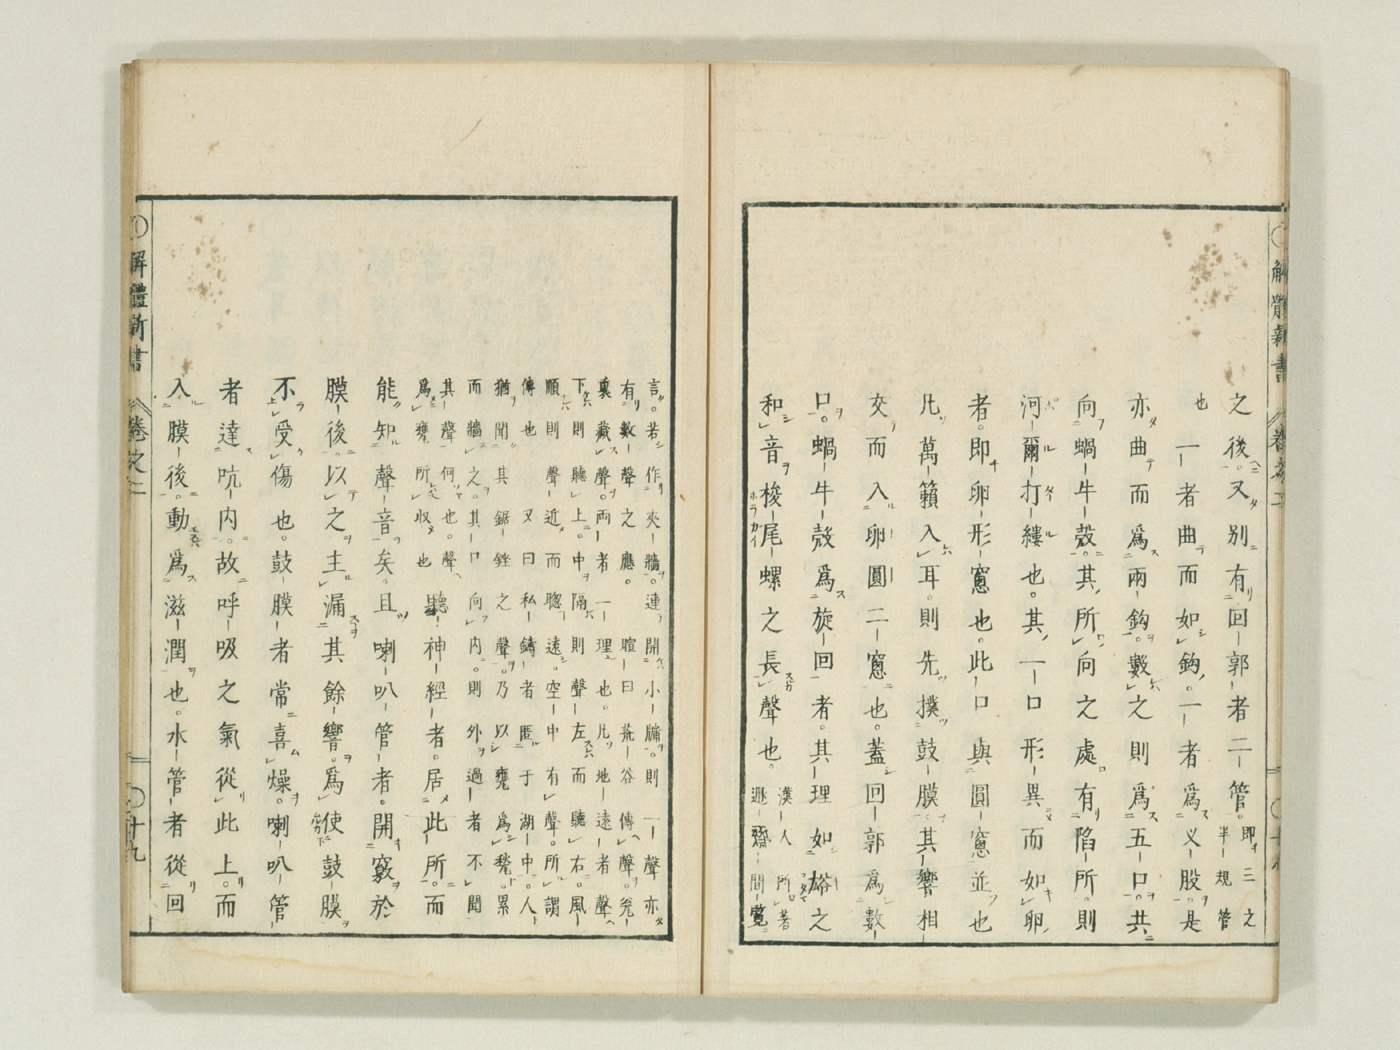 解體新書 卷之二
之後。又別有回郭者二管。即三之
半規管
也 一者曲而如鈎。一者爲义股。是
亦曲而爲兩鈎。數之則爲五口。共
向蝸牛殼。其所向之處。有陷所。則
河爾打縷也。其一口形異而如卵
者。即卵形窻也。此口與圓窻並也
凡萬籟入耳。則先撲鼓膜。其響相
交而入卵圓二窻也。蓋回郭爲數
口。蝸牛殼爲旋回者。其理如谿之
和音梭尾螺之長聲也。漢人所著
遯齋間覽
言。若作夾牆。連開小牖。則一聲亦
有數聲之應。暄曰荒谷傳聲。甕
裏藏聲。兩者一理也。凡地遠者聲
下則聽上。中隔則聲左而聽右。風
順則聲近而聰遠。空中有聲。所謂
傳也 又曰私鑄者匿于湖中。人
猶聞其鋸銼之聲。乃以甕爲甃。累
而牆之。其口向内。則外過者不聞
其聲何也。聲
爲甕所収也 聽神經者。居此所。而
能知聲音矣。且喇叭管者。開竅於
膜後。以之主漏其餘響。爲使鼓膜
不受傷也。鼓膜者常喜燥。喇叭管
者達吭内。故呼吸之氣從此上。而
入膜後。動爲滋潤也。水管者從回
解體新書 卷之二 〇十九